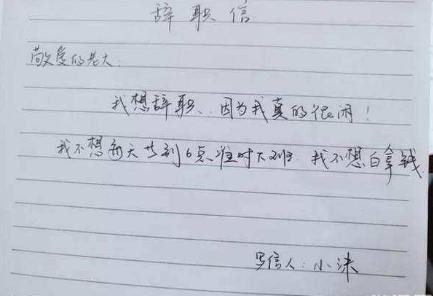 辞职信
敬爱的老大.
我想辞职、因为我真的很闲！
我不想每天一到6点准时下班 我不想白拿钱
写信人:小沫